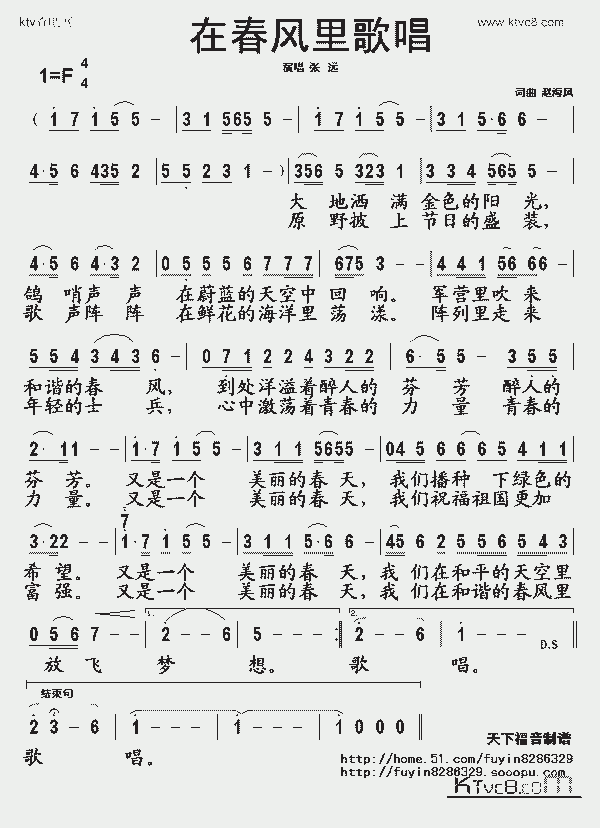 www.ktvc8.com
在春风里歌唱
演唱 张 远
1=F 4/4
词曲 赵海凤
( 1 7 1 5 5 - | 3 1 565 5 - | 1 7 1 5 5 - | 3 1 5·6 6 - |
4·5 6 435 2 | 5 5 2 3 1 - ) | 356 5 323 1 | 3 3 4 565 5 - |
大 地洒 满 金色的阳 光,
原 野披 上 节日的盛 装,
4·5 6 4·3 2 | 0 5 5 5 6 7 7 7 | 675 3 - - | 4 4 1 56 66 - |
鸽 哨声 声 在蔚蓝的天空中 回 响。 军营里吹 来
歌 声阵 阵 在鲜花的海洋里 荡 漾。 阵列里走 来
5 5 4 3 4 3 6 - | 0 7 1 2 2 4 3 2 2 | 6· 5 5 - 3 5 5 |
和谐的春 风, 到处洋溢着醉人的 芬 芳 醉人的
年轻的士 兵, 心中激荡着青春的 力 量 青春的
2· 1 1 - - | 1·7 1 5 5 - | 3 1 1 5655 - | 04 5 6 6 6 5 4 1 1 |
芬 芳。 又是一个 美丽的春 天, 我们播种 下绿色的
力 量。 又是一个 美丽的春 天, 我们祝福祖国更加
7
3·22 - - | 1·7 1 5 5 - | 3 1 1 5·6 6 - | 45 6 2 5 5 6 5 4 3 |
希 望。 又是一个 美丽的春 天, 我 们在和平的天空里
富 强。 又是一个 美丽的春 天, 我 们在和谐的春风里
0 5 6 7 - - | 1. 2 - - 6 | 5 - - - :| 2. 2 - - 6 | 1 - - - D.S
放 飞 梦 想。 歌 唱。
结束句
2 3 - 6 | 1 - - - | 1 - - - | 1 0 0 0 ||
歌 唱。
天下福音制谱
http://home.51.com/fuyin8286329
http://fuyin8286329.sooopu.com
KTvc8.com